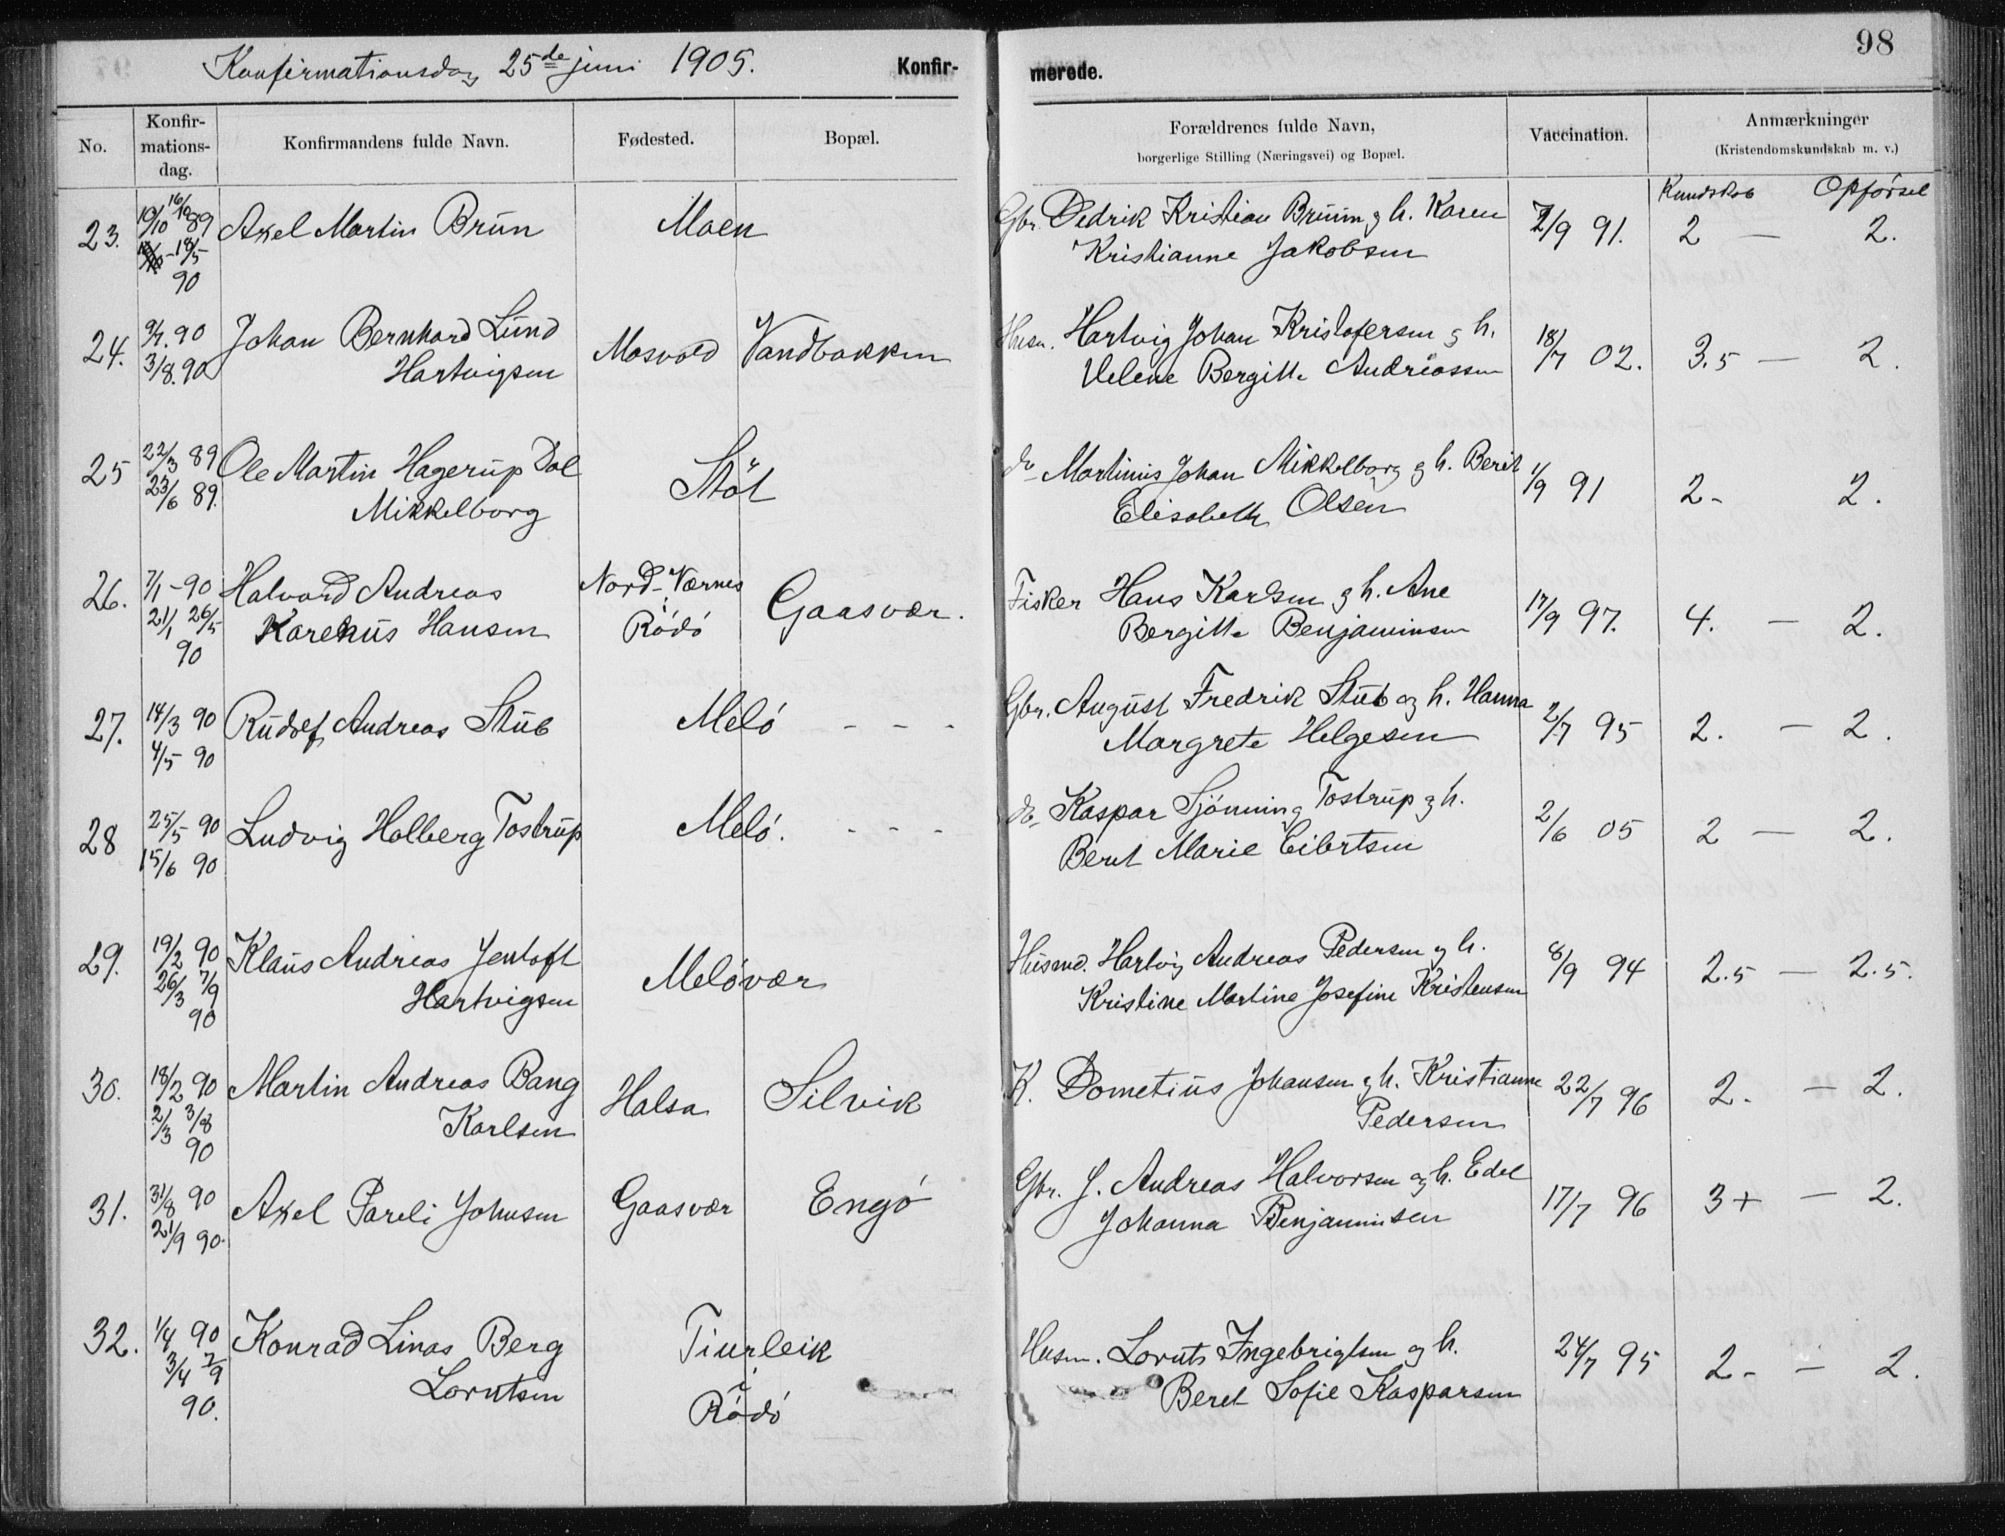 98
Konfirmationsdag 25de juni 1905. Konfir- merede.
No. Konfir-mations-dag. Konfirmandens fulde Navn. Fødested. Bopæl. Forældrenes fulde Navn, borgerlige Stilling (Næringsvei) og Bopæl. Vaccination. Anmærkninger (Kristendomskundskab m. v.)
Kundskab Opførsel
23. 10/10 89 Axel Martin Brun Maen Gbr. Dedrik Kristian Bruun g h. Karen 2/9 91. 2 — 2.
18/5 90 Kristianne Jakobsen
24. 9/7. 90 Johan Bernhard Lund Mosvold Vandbakken Husm. Hartvig Johan Kristofersen g h. 18/7 02. 3.5 — 2.
3/8. 90 Hartvigsen Velene Bergitte Andreassen
25 22/3 89 Ole Martin Hagerup Dal Støt do Martinus Johan Mikkelborg g h. Berit 1/9 91 2- 2.
23/6 89. Mikkelborg Elisabeth Olsen
26. 7/1-90 Halvard Andreas Nord-Værnes Gaasvær. Fisker Hans Karlsen g h. Ane 17/9 97. 4. — 2.
21/1 26/5 90 Karenus Hansen Rødø Bergitte Benjaminsen
27. 14/3 90 Rudolf Andreas Stub Melø - - - Gbr. August Fredrik Stub og h. Hanna 2/7 95 2. — 2.
4/5 90 Margrete Helgesen
28 25/5 90 Ludvig Holberg Tostrup Melø. - - - do Kaspar Sjønning Tostrup g h. 2/6 05 2 — 2.
15/6 90 Beret Marie Eibertsen
29. 19/2 90 Klaus Andreas Jentoft Meløvær Husmd. Hartvig Andreas Pedersen g h. 8/9 94 2.5 — 2.5.
26/3 7/9 90 Hartvigsen Kristine Martine Josefine Kristensen
30. 18/2 90 Martin Andreas Bang Halsa Silvik K. Dometius Johansen g h. Kristianne 22/7 96 2. — 2.
2/3 3/8 90 Karlsen Pedersen
31. 31/8 90 Axel Pareli Johnsen Gaasvær Engø Gbr. J. Andreas Halvorsen og h. Edel 17/7 96 3+ — 2.
21/9 90. Johanna Benjaminsen
32. 1/4 90 Konrad Linas Berg Tiurleik Husm. Lornts Ingebrigtsen og h. 24/7 95 2- — 2.
3/4 7/9 90. Lorntsen i Rødø Beret Sofie Kasparsen